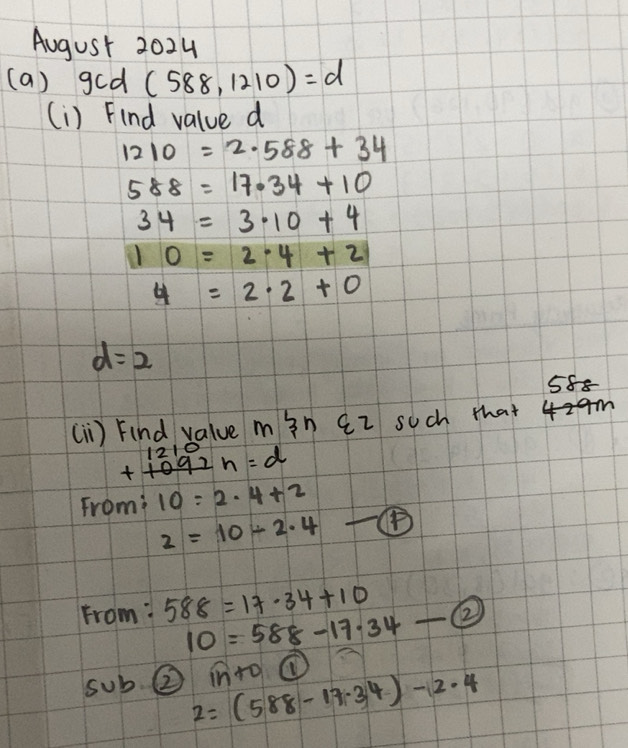 August 2024
(a) gcd (588, 1210) = d
(i) Find value d
1210 = 2·588 + 34
588 = 17·34 + 10
34 = 3·10 + 4
10 = 2·4 + 2
4 = 2·2 + 0
d = 2
588
(ii) Find value m & n ∈ Z such that 429m
1210
+ 1092 n = d
From: 10 = 2·4 + 2
2 = 10 - 2·4 — ①
From: 588 = 17·34 + 10
10 = 588 - 17·34 — ②
sub ② into ①
2 = (588 - 17·34) - 2·4